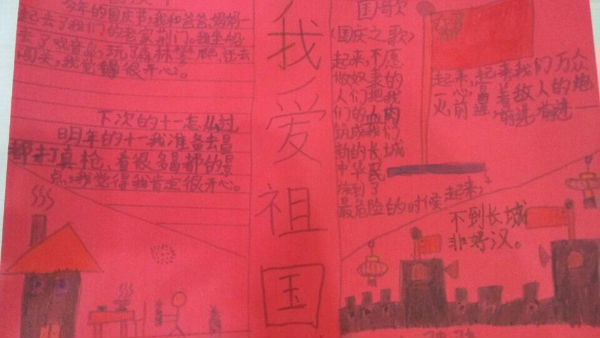 今年的国庆节，我和爸爸妈妈一
起去了我们的老家荆门。我坐
闯关，我觉得很开心。
下次的十一怎么过
明年的十一我准备去昌
都打真枪，看很多昌都的景
点，我觉得我肯定很开心。
我爱祖国
国歌
（国庆之歌）
起来，不愿
做奴隶的
人们把我
们的血肉
筑成我们
新的长城
中华民
族到了
最危险的时候起来，
起来，起来我们万众
一心冒着敌人的炮
火前进 前进 前进
不到长城
非好汉。